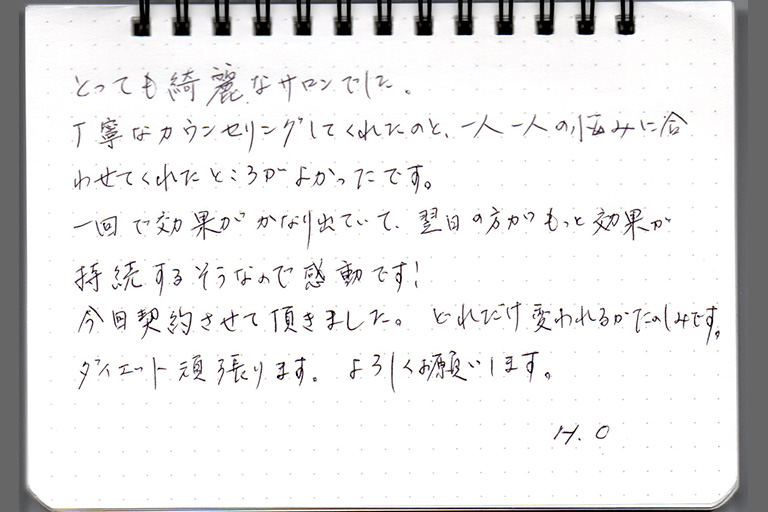 とっても綺麗なサロンでした。
丁寧なカウンセリングしてくれたのと、一人一人の悩みに合
わせてくれたところがよかったです。
一回で効果がかなり出ていて、翌日の方がもっと効果が
持続するそうなので感動です!
今日契約させて頂きました。 どれだけ変われるかたのしみです。
ダイエット頑張ります。 よろしくお願いします。
H.O